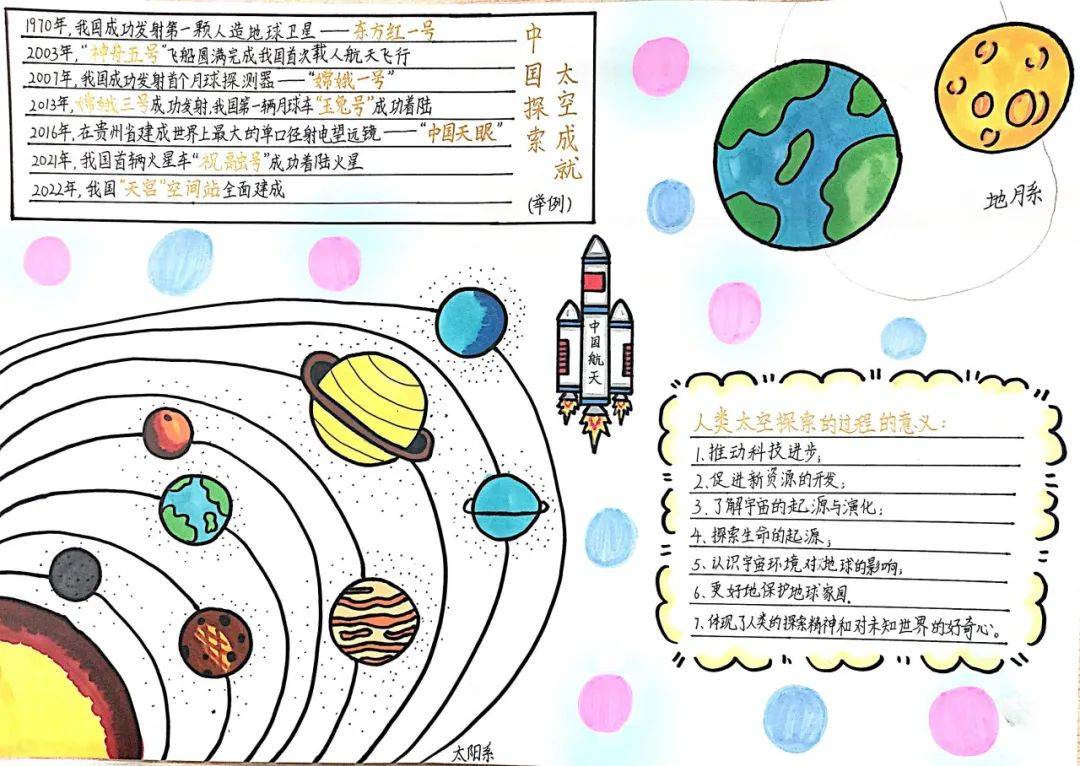 1970年,我国成功发射第一颗人造地球卫星——东方红一号
2003年,“神舟五号”飞船圆满完成我国首次载人航天飞行
2007年,我国成功发射首个月球探测器——“嫦娥一号”
2013年,嫦娥三号成功发射,我国第一辆月球车“玉兔号”成功着陆
2016年,在贵州省建成世界上最大的单口径射电望远镜——“中国天眼”
2021年,我国首辆火星车“祝融号”成功着陆火星
2022年,我国“天宫”空间站全面建成
中国探索
太空成就
(举例)
地月系
中国航天
人类太空探索的过程的意义:
1.推动科技进步;
2.促进新资源的开发;
3.了解宇宙的起源与演化;
4.探索生命的起源;
5.认识宇宙环境对地球的影响;
6.更好地保护地球家园.
7.体现了人类的探索精神和对未知世界的好奇心。
太阳系